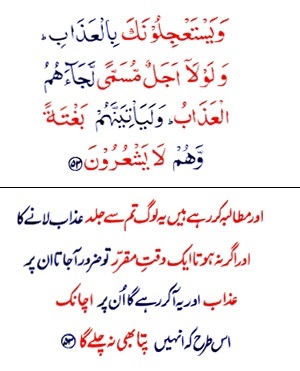 وَيَسْتَعْجِلُوْنَكَ بِالْعَذَابِ ؕ
وَلَوْلَاۤ اَجَلٌ مُّسَمًّى لَّجَآءَهُمُ
الْعَذَابُ ؕ وَلَيَاْتِيَنَّهُمْ بَغْتَةً
وَّهُمْ لَا يَشْعُرُوْنَ ﴿۵۳﴾
اور مطالبہ کر رہے ہیں یہ لوگ تم سے جلد عذاب لانے کا
اور اگر نہ ہوتا ایک وقتِ مقرّر تو ضرور آ جاتا ان پر
عذاب اور یہ آ کر رہے گا اُن پر اچانک
اس طرح کہ انہیں پتا بھی نہ چلے گا ﴿۵۳﴾